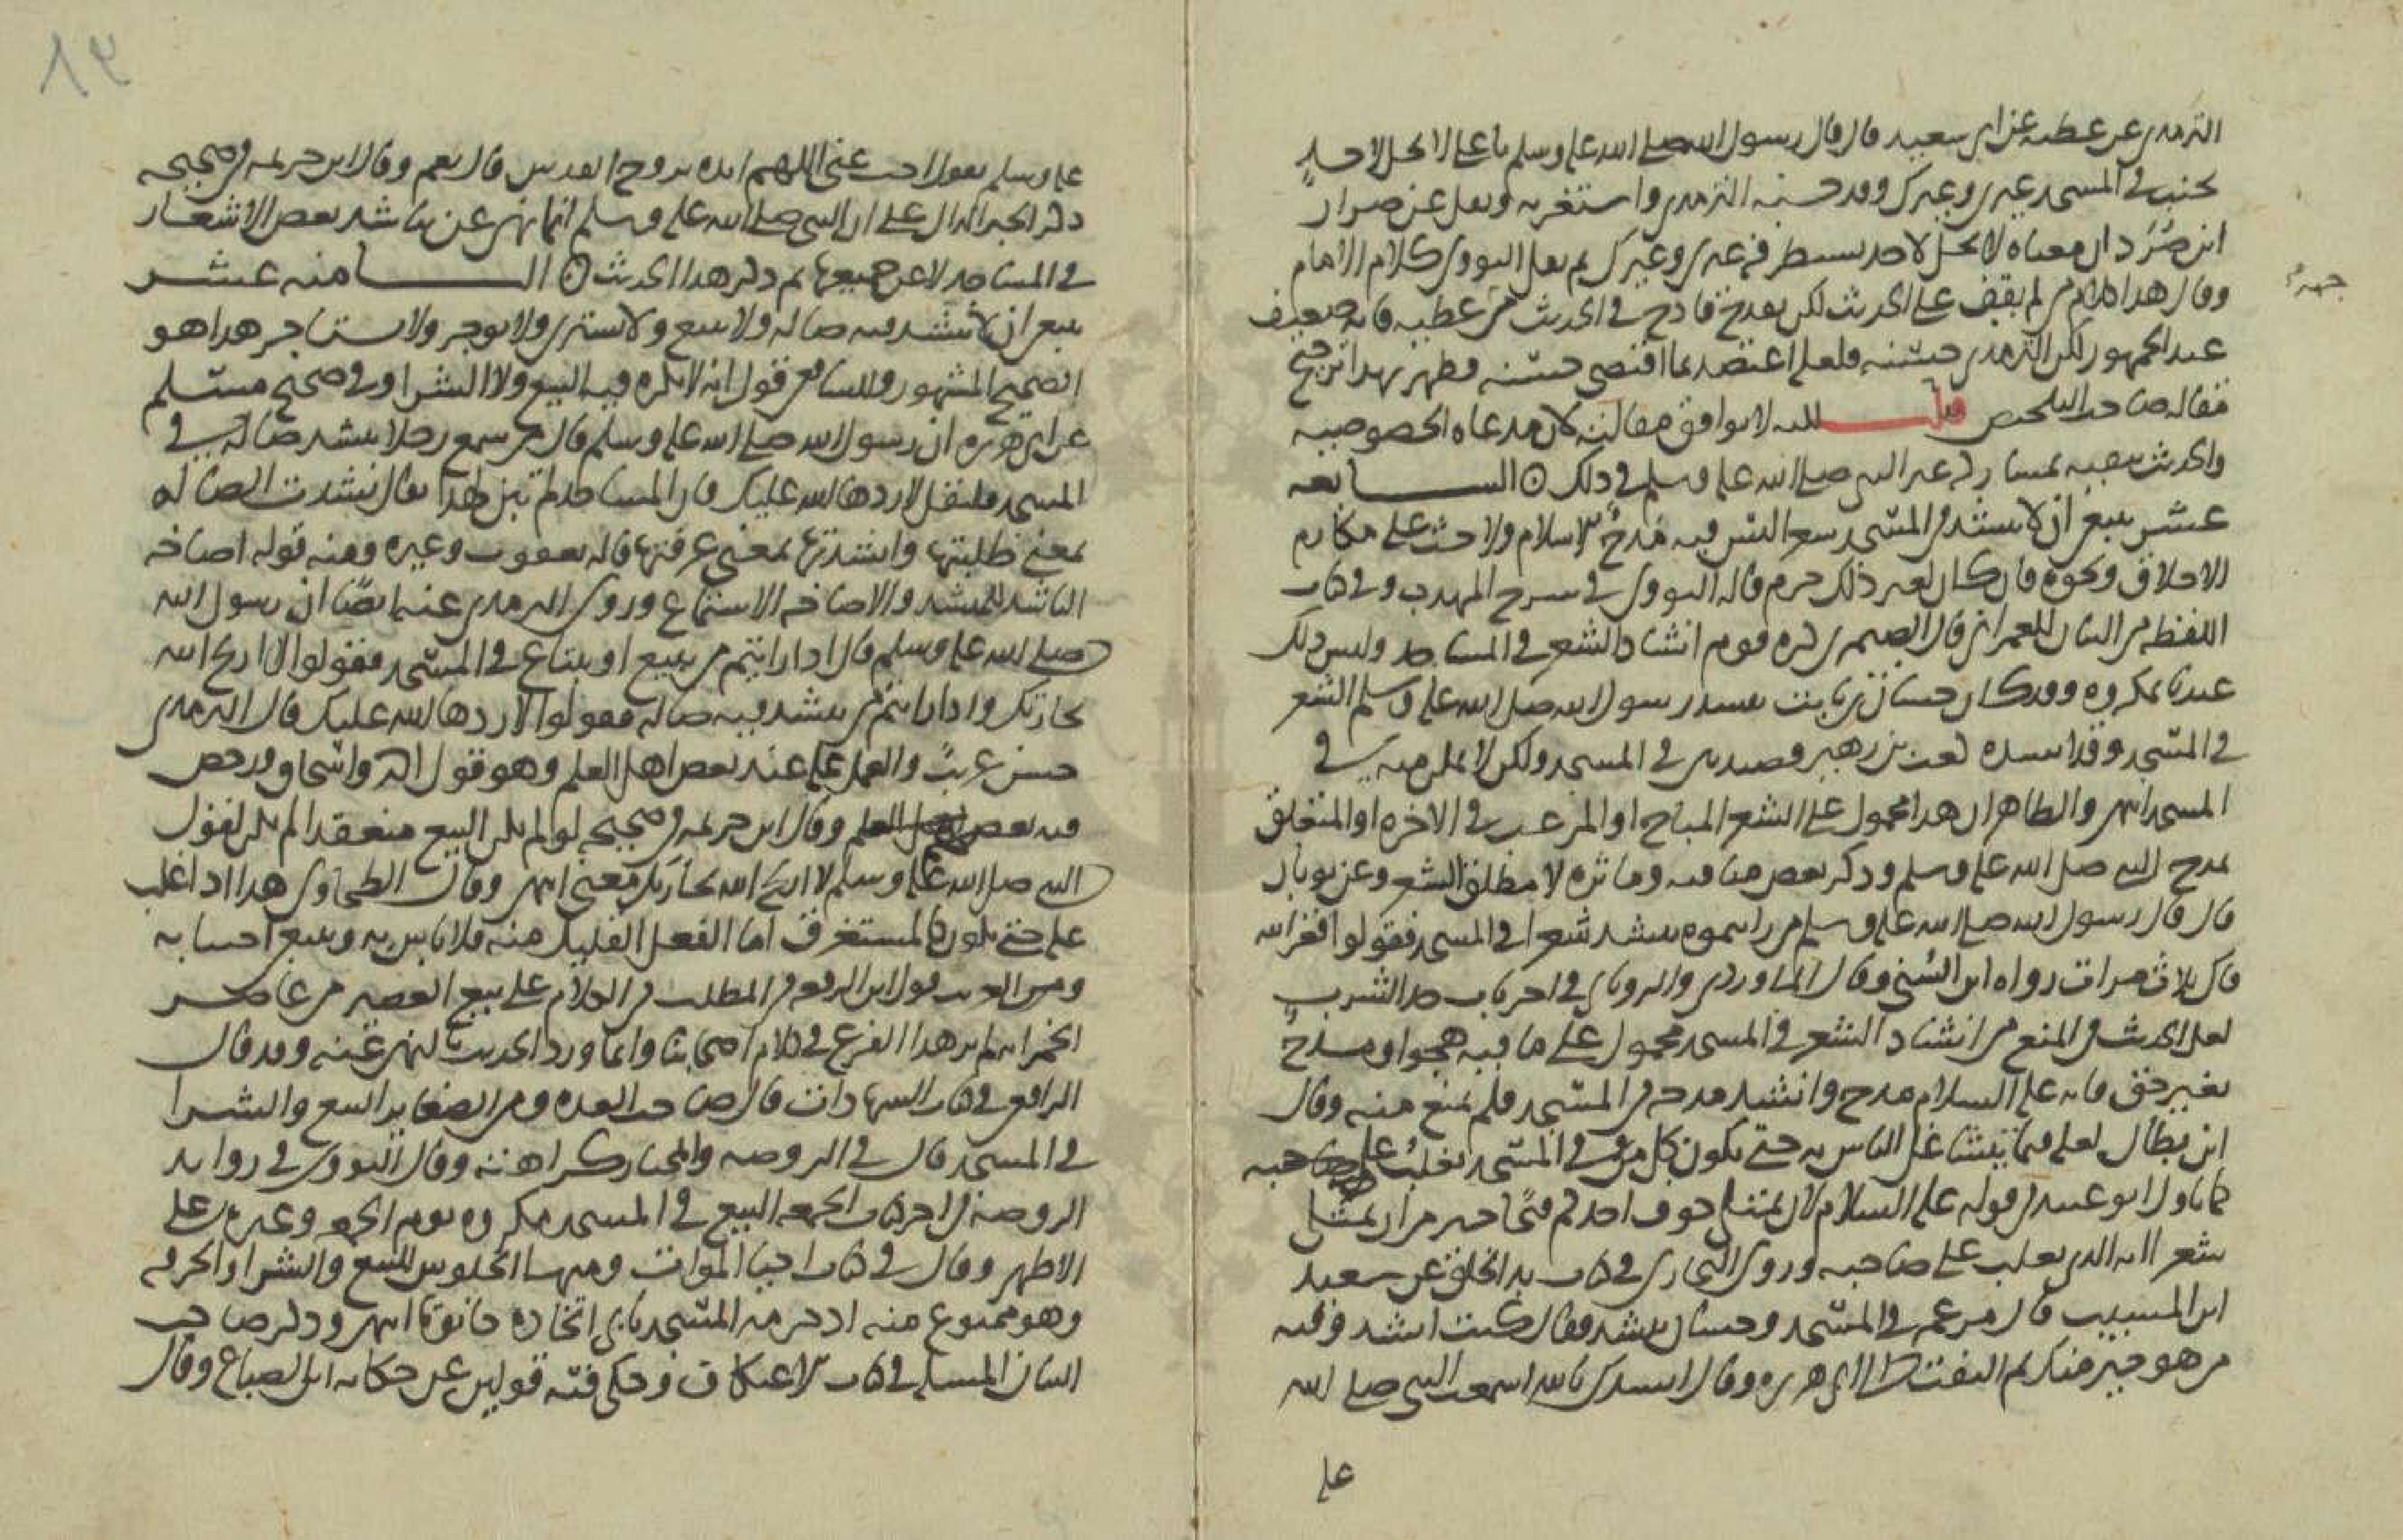 الترمذي عن عطية عن أبي سعيد قال قال رسول الله صلى الله عليه وسلم يا علي لا يحل لأحد
يجنب في المسجد غيري وغيرك وقد حسنه الترمذي واستغربه ونقل عن ضرار
ابن صُرَد أن معناه لا يحل لأحد يستطرقه غيري وغيرك ثم نقل النووي كلام الإمام
وقال هذا كلام من لم يقف على الحديث لكن يقدح قادح في الحديث من عطية فإنه ضعيف
عند الجمهور لكن الترمذي حسنه فلعله اعتضد بما اقتضى حسنه فظهر بهذا ترجيح
مقالة صاحب التلخيص قلت لكنه لا يوافق مقالته لأن مدعاه الخصوصية
والحديث يقتضيه بمشاركة غير النبي صلى الله عليه وسلم في ذلك ۞ السابعة
عشر ينبغي أن لا ينشد في المسجد شعر ليس فيه مدح الإسلام ولا حث على مكارم
الأخلاق ونحوه فإن كان لغير ذلك حرم قاله النووي في شرح المهذب وفي كتاب
اللقطة من البيان للعمراني قال الصيمري كره قوم إنشاد الشعر في المساجد وليس ذلك
عندنا بمكروه وقد كان حسان بن ثابت ينشد رسول الله صلى الله عليه وسلم الشعر
في المسجد وقد أنشده كعب بن زهير قصيدتين في المسجد ولكن لا يكثر منه في
المسجد انتهى والظاهر أن هذا محمول على الشعر المباح أو المرغب في الآخرة أو المتعلق
بمدح النبي صلى الله عليه وسلم وذكر بعض مناقبه ومآثره لا مطلق الشعر وعن ثوبان
قال قال رسول الله صلى الله عليه وسلم من رأيتموه ينشد شعرا في المسجد فقولوا فض الله
فاك ثلاث مرات رواه ابن السني وقال الماوردي والروياني في آخر باب حد الشرب
لعل الحديث في المنع من إنشاد الشعر في المسجد محمول على ما فيه هجو أو مدح
بغير حق فإنه عليه السلام مدح وأنشد مدحه في المسجد فلم يمنع منه وقال
ابن بطال لعله فيما يتشاغل الناس به حتى يكون كل من في المسجد يغلب عليه صاحبه
كما تأول أبو عبيد في قوله عليه السلام لأن يمتلئ جوف أحدكم قيحا خير من أن يمتلئ
شعرا أنه الذي يغلب على صاحبه وروى البخاري في كتاب بدء الخلق عن سعيد
ابن المسيب قال مر عمر في المسجد وحسان ينشد فقال كنت أنشد وفيه
من هو خير منك ثم التفت إلى أبي هريرة وقال أنشدك بالله أسمعت النبي صلى الله
علي
عليه وسلم يقول أجب عني اللهم أيده بروح القدس قال نعم وقال ابن خزيمة في صحيحه
ذكر الخبر الدال على أن النبي صلى الله عليه وسلم إنما نهى عن تناشد بعض الأشعار
في المساجد لا عن جميعها ثم ذكر هذا الحديث ۞ الثامنة عشر
ينبغي أن لا ينشد فيه ضالة ولا يبيع ولا يشتري ولا يؤجر ولا يستأجر هذا هو
الصحيح المشهور وللشافعي قول أنه لا يكره فيه البيع ولا الشراء وفي صحيح مسلم
عن أبي هريرة أن رسول الله صلى الله عليه وسلم قال من سمع رجلا ينشد ضالة في
المسجد فليقل لا ردها الله عليك فإن المساجد لم تبن لهذا يقال نشدت الضالة
بمعنى طلبتها وأنشدتها بمعنى عرفتها قاله يعقوب وغيره ومنه قوله إصاخة
الناشد للمنشد والإصاخة الاستماع وروى الترمذي عنه أيضا أن رسول الله
صلى الله عليه وسلم قال إذا رأيتم من يبيع أو يبتاع في المسجد فقولوا لا أربح الله
تجارتك وإذا رأيتم من ينشد فيه ضالة فقولوا لا ردها الله عليك قال الترمذي
حسن غريب والعمل عليه عند بعض أهل العلم وهو قول أحمد وإسحاق ورخص
فيه بعض أهل العلم وقال ابن خزيمة في صحيحه لو لم يكن البيع منعقدا لم يكن لقول
النبي صلى الله عليه وسلم لا أربح الله تجارتك معنى انتهى وقال الطحاوي هذا إذا غلب
عليه حتى يكون كالمستغرق أما الفعل القليل منه فلا بأس به وتبع أصحابه
ومن الغريب قول ابن الرفعة في المطلب في الكلام على بيع العصير من عاصر
الخمر أنه لم ير هذا الفرع في كلام أصحابنا وإنما ورد الحديث بالنهي عنه وقد قال
الرافعي في كتاب الشهادات قال صاحب العدة ومن الصغائر البيع والشراء
في المسجد قال في الروضة والمختار كراهته وقال النووي في زوائد
الروضة في آخر كتاب الجمعة البيع في المسجد مكروه يوم الجمعة وغيره على
الأظهر وقال في كتاب إحياء الموات ومنها الجلوس للبيع والشراء والحرفة
وهو ممنوع منه إذ حرمة المسجد تأبى اتخاذه حانوتا انتهى وذكر صاحب
البيان المسألة في كتاب الاعتكاف وحكى فيه قولين عن حكاية ابن الصباغ وقال